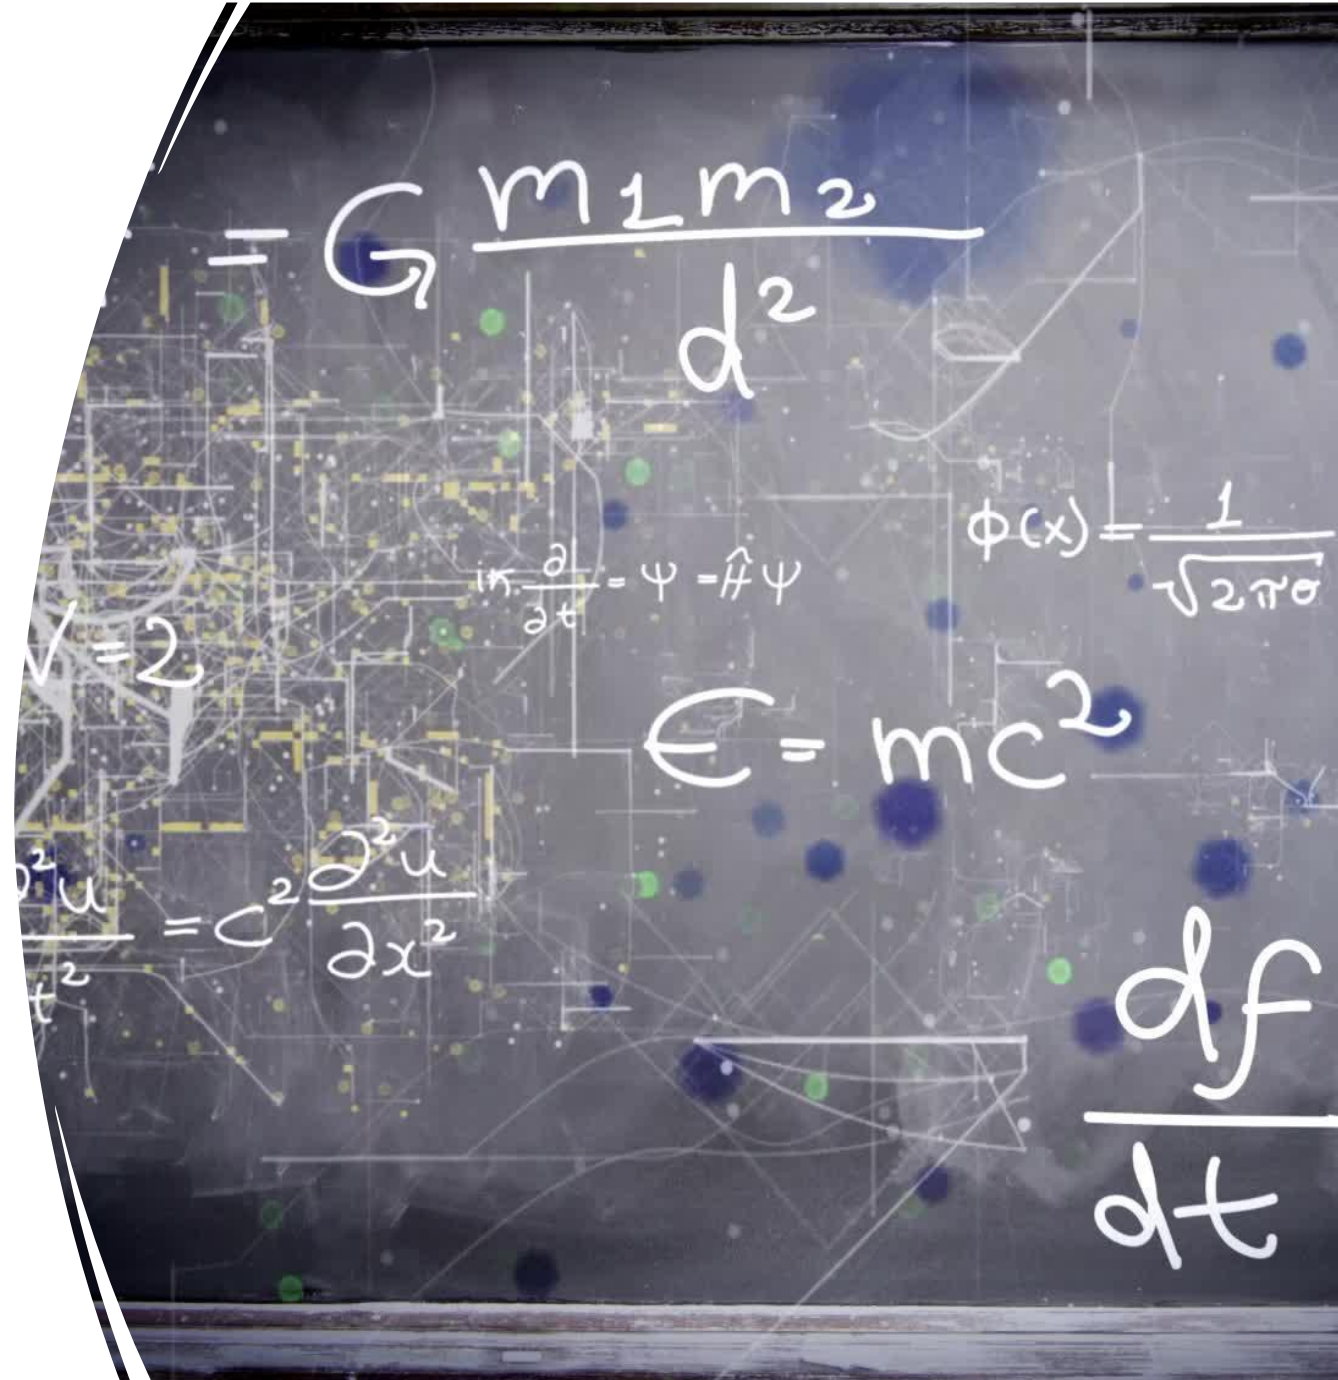 = G m1 m2 / d²
φ(x) = 1 / √2πσ
iħ ∂/∂t = Ψ = Ĥ Ψ
V = 2
E = mc²
∂²u / t² = c² ∂²u / ∂x²
df / dt